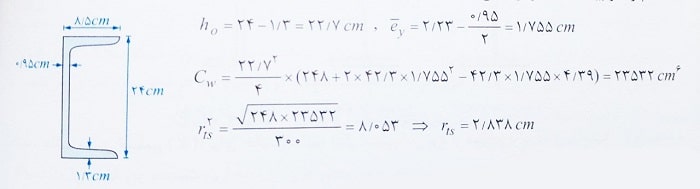 ۸/۵cm
۰/۹۵cm
۲۴cm
۱/۳cm
h₀ = ۲۴ − ۱/۳ = ۲۲/۷ cm , ēy = ۲/۲۳ − ۰/۹۵/۲ = ۱/۷۵۵ cm
Cw = ۲۲/۷²/۴ × (۲۴۸ + ۲ × ۴۲/۳ × ۱/۷۵۵² − ۴۲/۳ × ۱/۷۵۵ × ۴/۳۹) = ۲۳۵۳۲ cm⁶
rts² = √۲۴۸ × ۲۳۵۳۲/۳۰۰ = ۸/۰۵۳ ⇒ rts = ۲/۸۳۸ cm